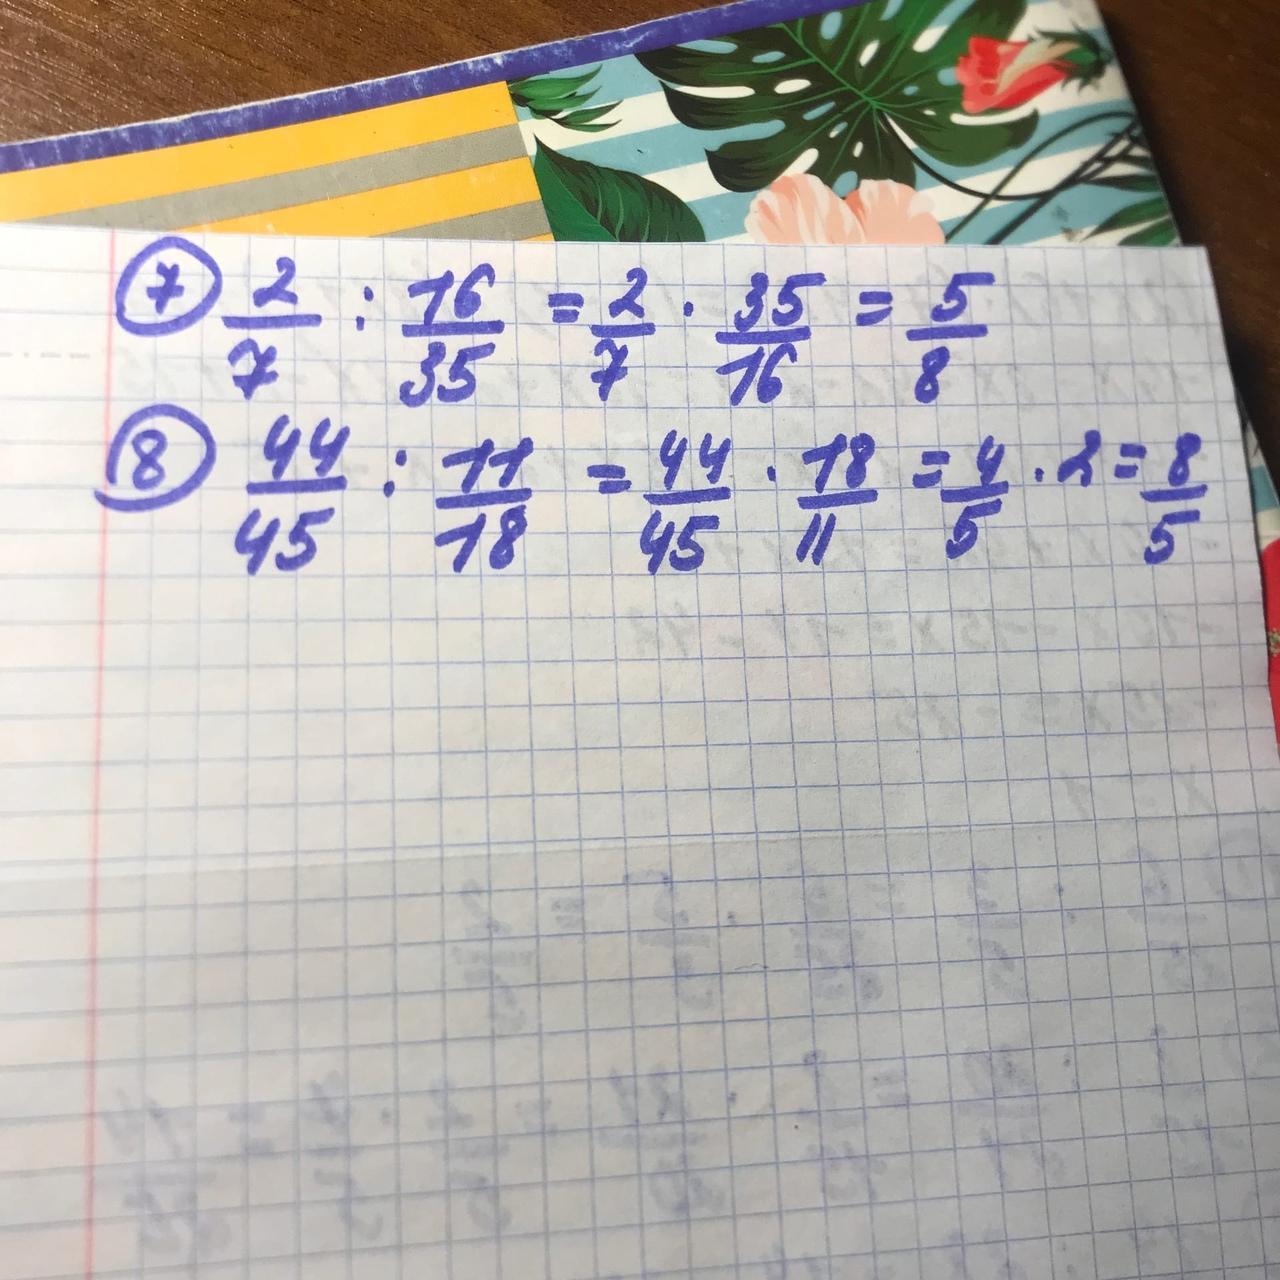 7 2/7 : 16/35 = 2/7 · 35/16 = 5/8
8 44/45 : 11/18 = 44/45 · 18/11 = 4/5 · 2 = 8/5